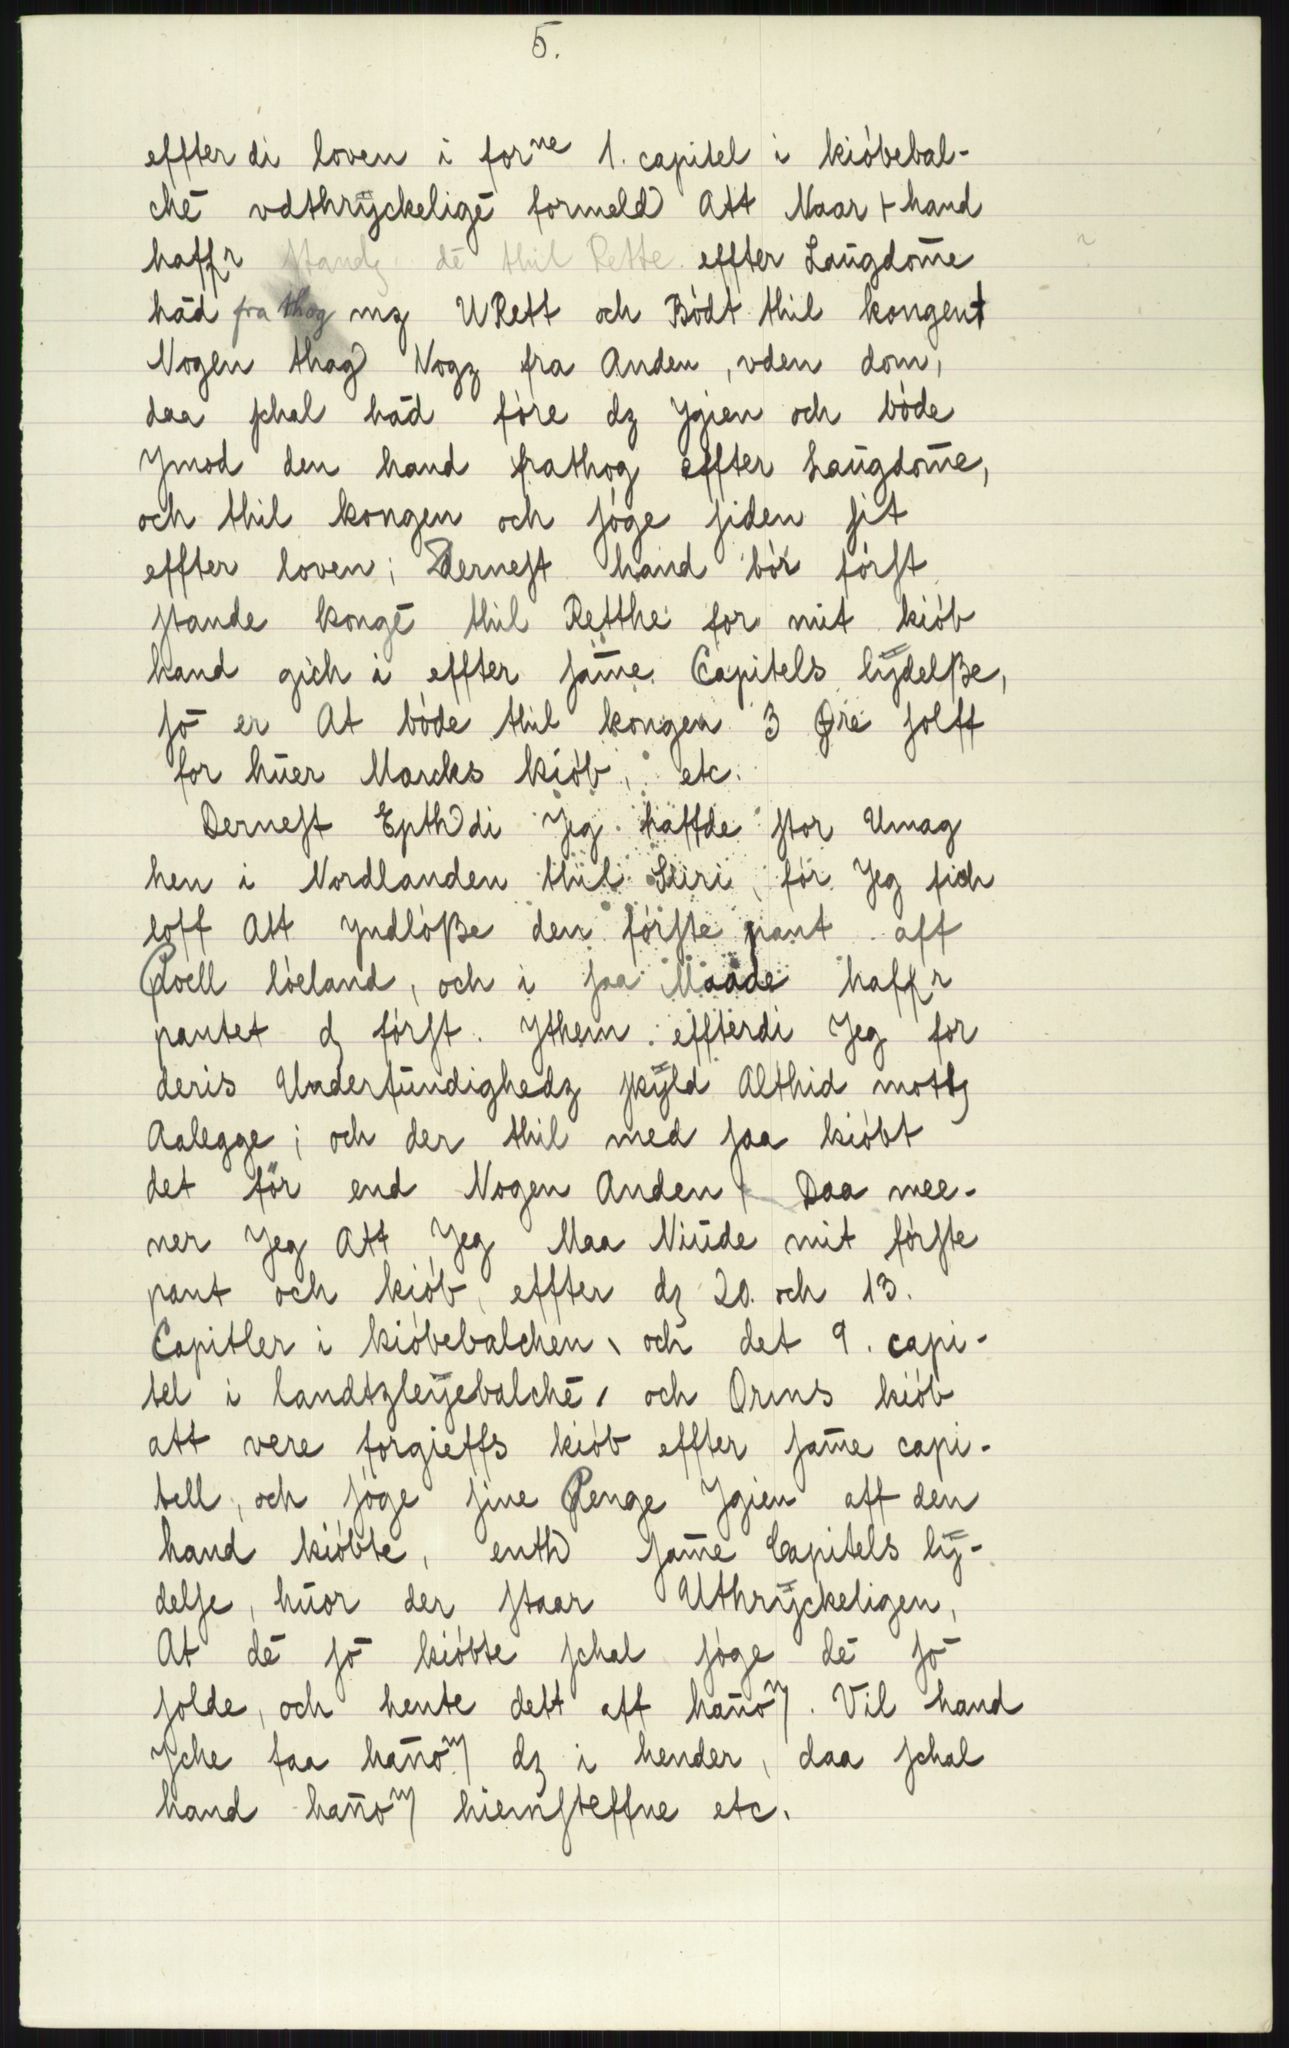 5.
effter di loven i forne 1. capitel i kióbebal-
chē vdthrÿckeligē formeld Att Naar + hand
haffr standz dē thil Rette effter Laŭgdom̄e
hād fra thog mz URett och Bódt thil kongen +
Nogen thag Nogz fra Anden, vden dom,
daa schal hād fóre dz Ygien och bóde
Ymod den hand frathog effter Laŭgdom̄e,
och thil kongen och sóge siden sit
effter loven; Dernest hand bór fórst
stande kongē thil Retthe for mit kiób
hand gich i effter sam̄e Capitels lÿdelße,
sō er At bóde thil kongen 3 Øre sólff
for hŭer Marcks kiób, etc.
Dernest Epth di Jeg haffde stor Umag
hen i Nordlanden thil Siri, fór Jeg fich
loff Att Yndlóße den fórste pant aff
Poell lóeland, och i saa Maade haffr
pantet dz fórst. Ythem effterdi Jeg for
deris Underfŭndighedz skÿld Althid mottz
Aalegge; och der thil med saa kióbt
det fór end Nogen Anden, Daa mee-
ner Jeg Att Jeg Maa Niŭde mit fórste
pant och kiób, effter dz 20. och 13.
Capitler i kióbebalchen, och det 9. capi-
tel i landtzleÿebalchē, och Orms kiób
att vere forgieffs kiób effter sam̄e capi-
tell, och sóge sine Penge Ygien aff den
hand kióbte, enth sam̄e Capitels lÿ-
delse, hŭor der staar Uthrÿckeligen,
At dē sō kióbte schal sóge dē sō
solde, och hente dett aff han̄om. Vil hand
Yche faa han̄om dz i hender, daa schal
hand han̄om hiemsteffne etc.